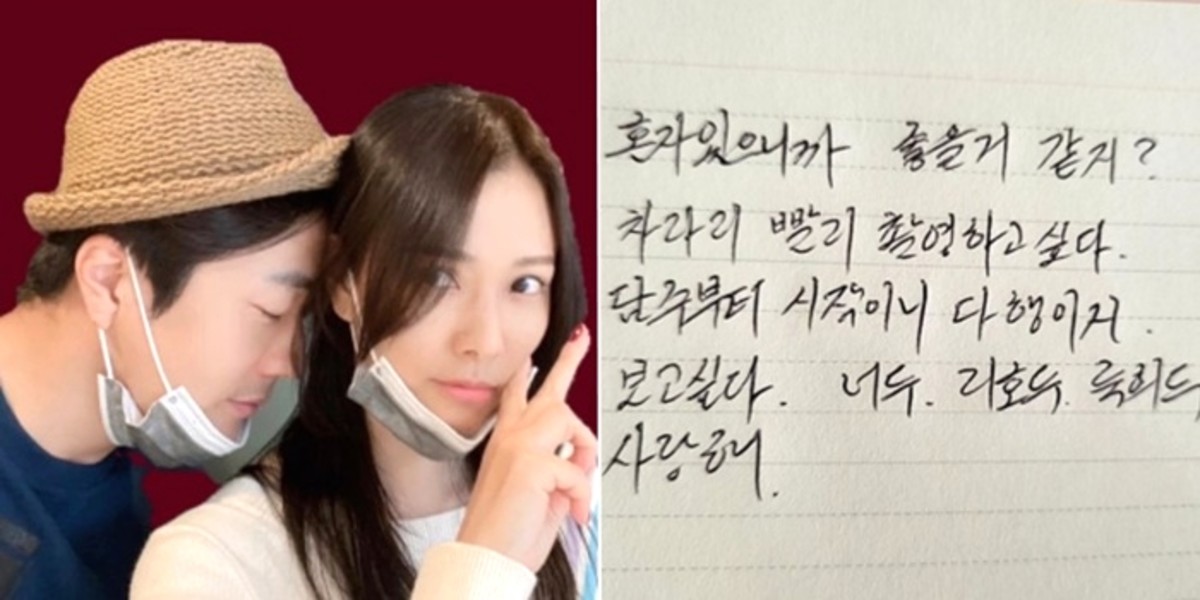 혼자있으니까 좋을거 같지?
차라리 빨리 촬영하고싶다.
담주부터 시작이니 다행이지.
보고싶다. 너두. 리호두. 룩희두
사랑해.